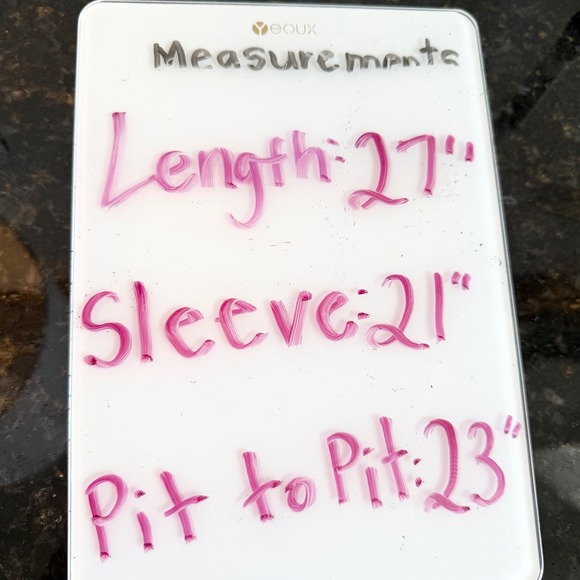 Yeoux
Measurements
Length: 27"
Sleeve: 21"
Pit to Pit: 23"